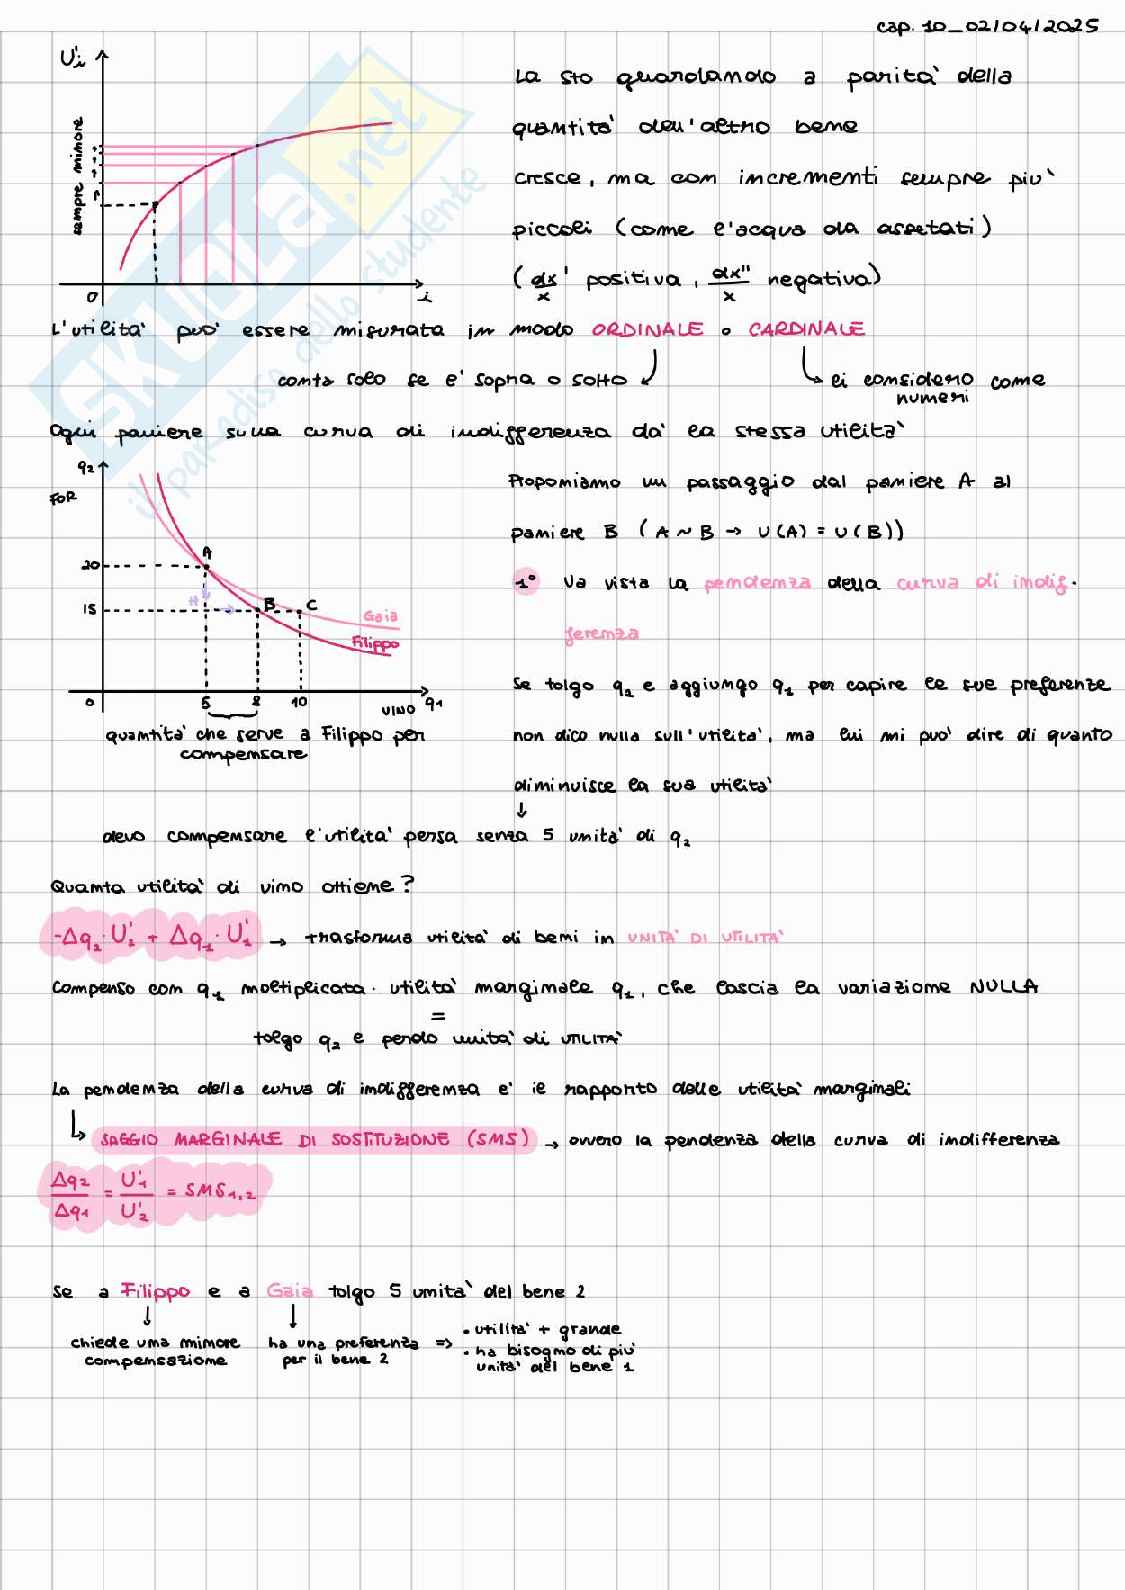 cap. 10_02/04/2025
U'i
sempre minore
0
i
La sto guardando a parità della
quantità dell'altro bene
cresce, ma con incrementi sempre più
piccoli (come l'acqua da assetati)
(dx/x ' positiva, dx''/x negativa)
L'utilità può essere misurata in modo ORDINALE o CARDINALE
conta solo se è sopra o sotto
li considero come
numeri
Ogni paniere sulla curva di indifferenza dà la stessa utilità
q2
FOR
20
15
A
H
B
C
Gaia
Filippo
0
5
8
10
VINO q1
quantità che serve a Filippo per
compensare
Proponiamo un passaggio dal paniere A al
paniere B (A ~ B → U(A) = U(B))
1° Va vista la pendenza della curva di indif-
ferenza
Se tolgo q2 e aggiungo q1 per capire le sue preferenze
non dico nulla sull'utilità, ma lui mi può dire di quanto
diminuisce la sua utilità
↓
devo compensare l'utilità persa senza 5 unità di q2
Quanta utilità di vino ottiene?
-Δq2·U'2 + Δq1·U'1 → trasforma utilità di beni in UNITÀ DI UTILITÀ
Compenso con q1 moltiplicata · utilità marginale q1, che lascia la variazione NULLA
=
tolgo q2 e perdo unità di UTILITÀ
La pendenza della curva di indifferenza è il rapporto delle utilità marginali
↳ SAGGIO MARGINALE DI SOSTITUZIONE (SMS) → ovvero la pendenza della curva di indifferenza
Δq2/Δq1 = U'1/U'2 = SMS1,2
Se a Filippo e a Gaia tolgo 5 unità del bene 2
chiede una minore
compensazione
ha una preferenza
per il bene 2
⇒ • utilità + grande
• ha bisogno di più
unità del bene 1
SKUOLA.net
il paradiso dello studente